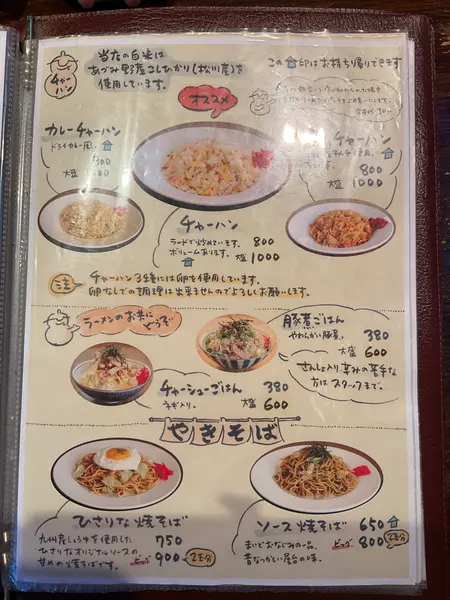 チャーハン
当店の白米は
あづみ野産こしひかり(松川産)を
使用しています。
この印はお持ち帰りできます
オススメ
カレーチャーハン
ドライカレー風。
800
大盛 1000
チャーハン
使用。
800
大盛 1000
チャーハン
ラードで炒めています。 800
ボリュームあります。 大盛 1000
注 チャーハン3種には卵を使用しています。
卵なしでの調理は出来ませんのでよろしくお願いします。
ラーメンのお米にどうぞ
豚煮ごはん 380
やわらかい豚煮。
大盛 600
さんしょ入り。辛みの苦手な
方はスタッフまで。
チャーシューごはん 380
ネギ入り。 大盛 600
やきそば
ひさりな焼そば
九州産しょうゆを使用した 750
ひさりなオリジナルソースの
甘めの焼そばです。 ビッグ 900 2玉分
ソース焼そば 650
まいどおなじみの一品。 ビッグ 800 2玉分
昔なつかしい屋台の味。